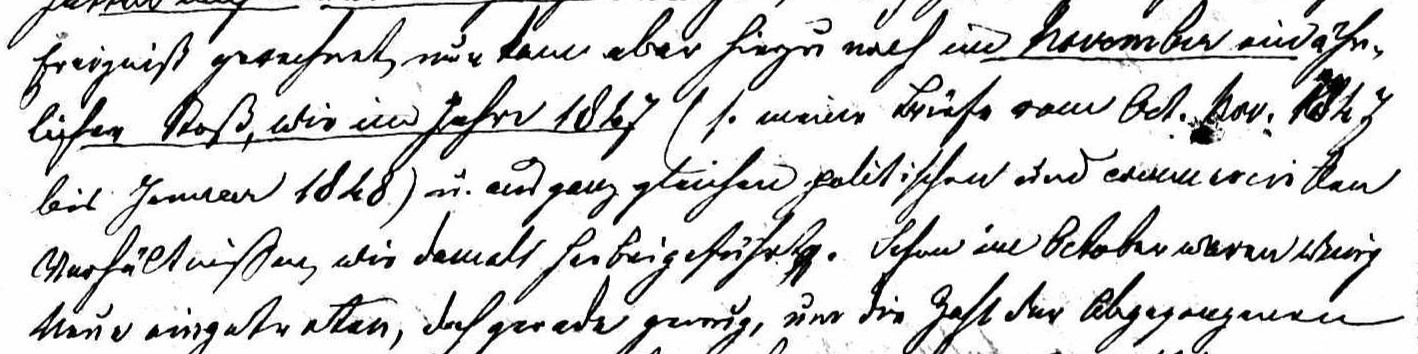 Ereigniß gerechnet, nun kam aber hiezu noch im November ein ähn-
licher Stoß, wie im Jahre 1847 (s. meine Briefe vom Oct. Nov. 1847
bis Januar 1848) u. aus ganz gleichen politischen und commerciellen
Verhältnißen, wie damals herbeigeführt. Schon im October waren wenig
Neue eingetreten, doch gerade genug, um die Zahl der Abgegangenen